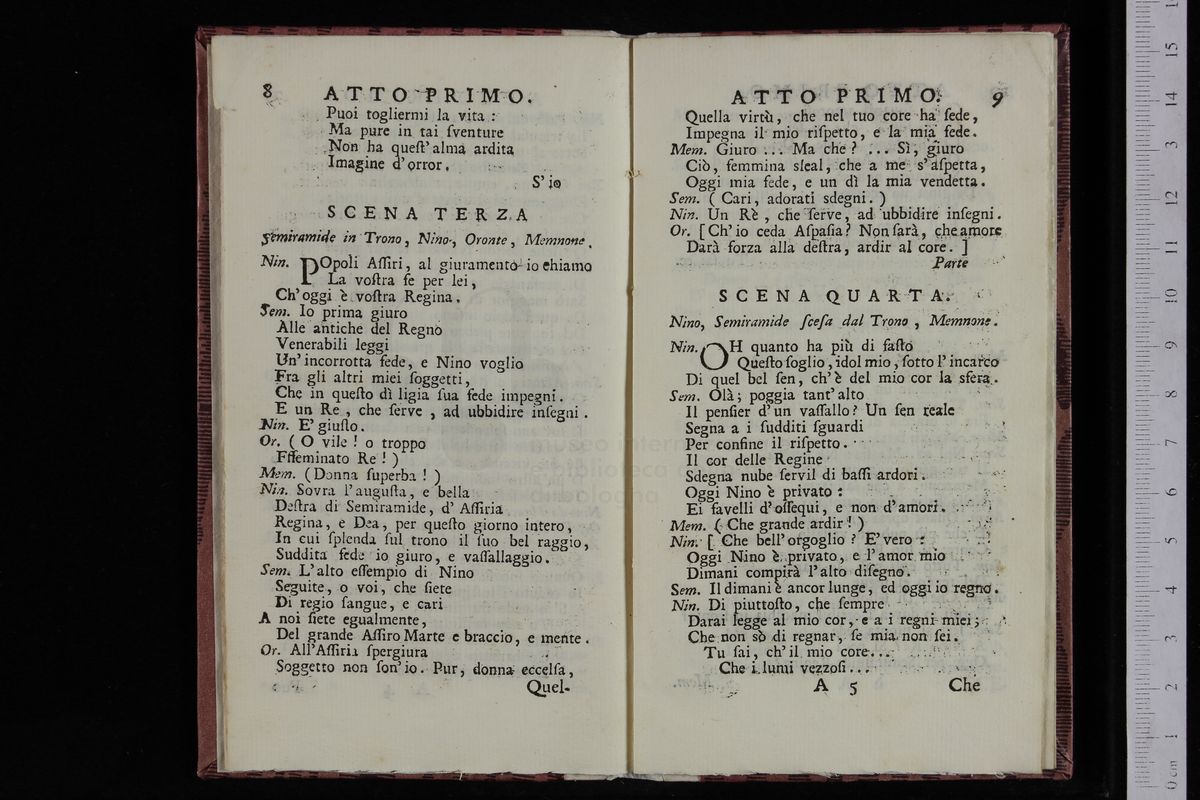 8 ATTO PRIMO.
Puoi togliermi la vita :
Ma pure in tai ſventure
Non ha queſt' alma ardita
Imagine d'orror.
S' io
SCENA TERZA
Semiramide in Trono, Nino, Oronte, Memnone.
Nin. POpoli Aſſiri, al giuramento io chiamo
La voſtra fe per lei,
Ch'oggi è voſtra Regina.
Sem. Io prima giuro
Alle antiche del Regno
Venerabili leggi
Un' incorrotta fede, e Nino voglio
Fra gli altri miei ſoggetti,
Che in queſto dì ligia ſua fede impegni.
E un Re , che ſerve , ad ubbidire inſegni .
Nin. E' giuſto.
Or. ( O vile ! o troppo
Effeminato Re ! )
Mem. (Donna ſuperba ! )
Nin. Sovra l'auguſta, e bella
Deſtra di Semiramide, d' Aſſiria
Regina, e Dea, per queſto giorno intero,
In cui ſplenda ſul trono il ſuo bel raggio,
Suddita fede io giuro, e vaſſallaggio.
Sem. L'alto eſſempio di Nino
Seguite, o voi, che ſiete
Di regio ſangue, e cari
A noi ſiete egualmente,
Del grande Aſſiro Marte e braccio, e mente.
Or. All'Aſſiria ſpergiura
Soggetto non ſon' io. Pur, donna eccelſa,
Quel-
ATTO PRIMO. 9
Quella virtù, che nel tuo core ha ſede,
Impegna il mio riſpetto, e la mia fede.
Mem. Giuro ... Ma che ? ... Sì, giuro
Ciò, femmina ſleal, che a me s'aſpetta,
Oggi mia fede, e un dì la mia vendetta.
Sem. ( Cari, adorati sdegni. )
Nin. Un Rè , che ſerve, ad ubbidire inſegni.
Or. [Ch' io ceda Aſpaſia? Non ſarà, che amore
Darà forza alla deſtra, ardir al core. ]
Parte
SCENA QUARTA.
Nino, Semiramide ſceſa dal Trono , Memnone.
Nin. OH quanto ha più di faſto
Queſto ſoglio, idol mio, ſotto l' incarco
Di quel bel ſen, ch'è del mio cor la sfera.
Sem. Olà; poggia tant' alto
Il penſier d'un vaſſallo? Un ſen reale
Segna a i ſudditi ſguardi
Per confine il riſpetto.
Il cor delle Regine
Sdegna nube ſervil di baſſi ardori.
Oggi Nino è privato :
Ei favelli d'oſſequi, e non d'amori.
Mem. ( Che grande ardir ! )
Nin. [ Che bell' orgoglio ? E' vero :
Oggi Nino è privato, e l'amor mio
Dimani compirà l'alto diſegno.
Sem. Il dimani è ancor lunge, ed oggi io regno.
Nin. Di piuttoſto, che ſempre
Darai legge al mio cor, e a i regni miei;
Che non sò di regnar, ſe mia non ſei.
Tu ſai, ch'il mio core...
Che i lumi vezzoſi ...
A 5 Che